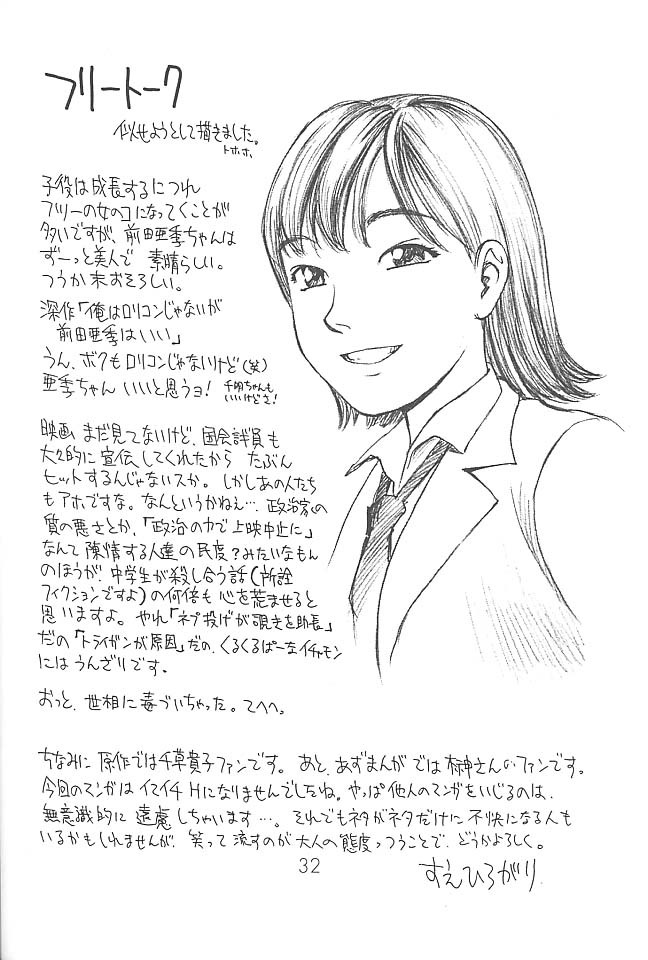 フリートーク
似せようとして描きました。
トホホ。
子役は成長するにつれ
フツーの女のコになってくことが
多いですが、前田亜季ちゃんは
ずーっと美人で 素晴らしい。
つうか末おそろしい。
深作「俺はロリコンじゃないが
前田亜季はいい」
うん、ボクもロリコンじゃないけど(笑)
亜季ちゃん いいと思うョ!
千明ちゃんも
いいけどさ!
映画 まだ見てないけど、国会議員も
大々的に宣伝してくれたから たぶん
ヒットするんじゃないスか。しかしあの人たち
もアホですな。なんというかねぇ…、政治家の
質の悪さとか、「政治の力で上映中止に」
なんて陳情する人達の民度?みたいなもん
のほうが、中学生が殺し合う話(所詮
フィクションですよ)の何倍も心を荒ませると
思いますよ。やれ「ネプ投げが覗きを助長」
だの「トライガンが原因」だの、くるくるぱーなイチャモン
にはうんざりです。
おっと、世相に毒づいちゃった。てへへ。
ちなみに 原作では千草貴子ファンです。あと、あずまんがでは榊さんのファンです。
今回のマンガはイマイチHになりませんでしたね。やっぱ他人のマンガをいじるのは、
無意識的に遠慮しちゃいます…。それでもネタがネタだけに不快になる人も
いるかもしれませんが、笑って流すのが大人の態度っつうことで、どうかよろしく。
すえひろがり
32